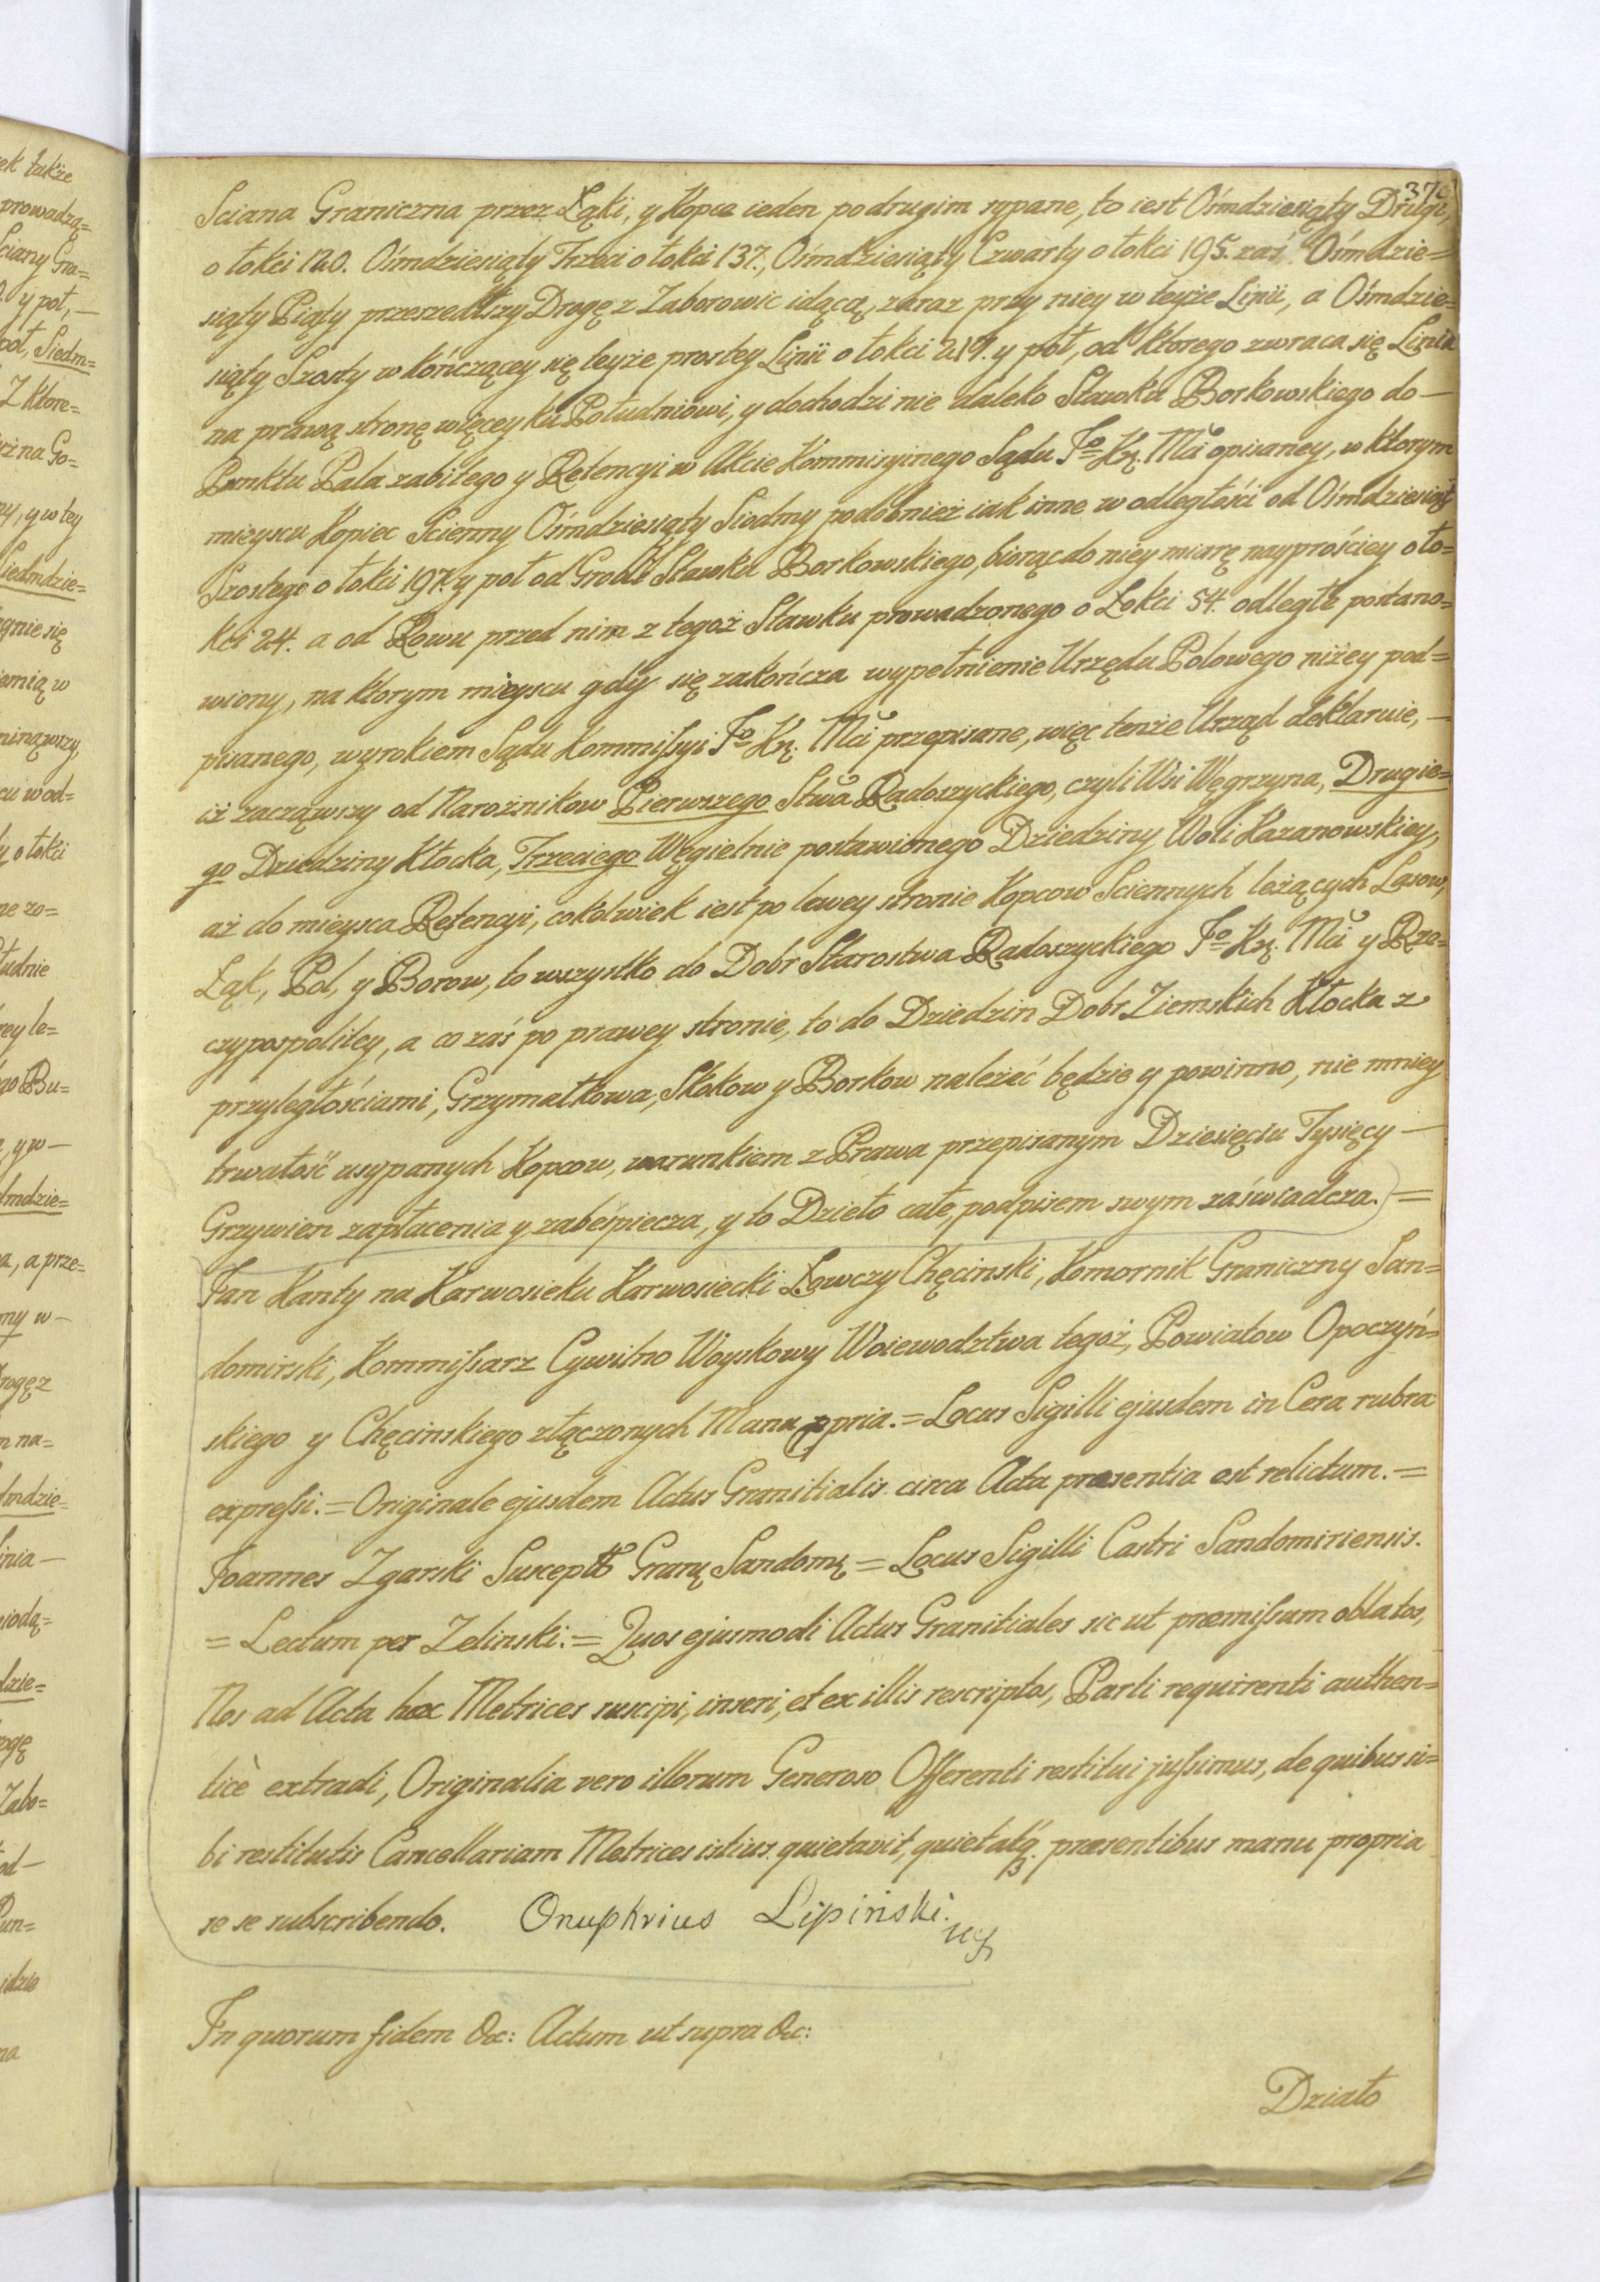 370
Sciana Graniczna przez Łąki, y Kopce ieden podrugim sypane, to iest Ośmdziesiąty Drugi,
o łokci 120. Ośmdziesiąty Trzeci o łokci 137., Ośmdziesiąty Czwarty o łokci 195. zaś Ośmdzie=
siąty Piąty przeszedłszy Drogę z Zaborowic idącą, zaraz przy niey w teyże Linii, a Ośmdzie=
siąty Szosty w kończącey się teyże prostey Linii o łokci 219. y poł, od ktorego zwraca się Linia
na prawą stronę więcey ku Południowi, y dochodzi nie daleko Stawku Borkowskiego do —
Punktu Pala zabitego y Retencyi w Akcie Kommisyinego Sądu Jº Kṛ. Mci opisaney, w ktorym
mieyscu Kopiec Scienny Ośmdziesiąty Siodmy podobnież iak inne w odległości od Ośmdziesiąt
Szostego o łokci 197. y poł od Grobli Stawku Borkowskiego, biorąc do niey miarę nayprościey o ło=
kci 24. a od Rowu przed nim z tegoż Stawku prowadzonego o Łokci 54. odległe postano=
wiony, na ktorym mieyscu gdy się zakończa wypełnienie Urzędu Polowego niżey pod=
pisanego, wyrokiem Sądu Kommissyi Jº Kṛ. Mci przepisane, więc tenże Urząd deklaruie, —
iż zacząwszy od Narożnikow Pierwszego Stwa Radoszyckiego, czyli Wsi Węgrzyna, Drugie=
go Dziedziny Kłocka, Trzeciego Węgielnie postawionego Dziedziny Woli Kazanowskiey,
aż do mieysca Retencyi, cokolwiek iest po lewey stronie Kopcow Sciennych leżących Lasow,
Łąk, Pol, y Borow, to wszystko do Dobr Starostwa Radoszyckiego Jº Kṛ. Mci y Rze=
czypospolitey, a co zaś po prawey stronie, to do Dziedzin Dobr Ziemskich Kłocka z
przyległościami, Grzymałkowa, Skokow y Borkow należeć będzie y powinno, nie mniey
trwałość usypanych Kopcow, warunkiem z Prawa przepisanym Dziesięciu Tysięcy —
Grzywien zapłacenia y zabeśpiecza, y to Dzieło całe, podpisem swym zaświadcza. =
Jan Kanty na Karwosieku Karwosiecki Łowczy Chęcinski, Komornik Graniczny San=
domirski, Kommissarz Cywilno Woyskowy Woiewodztwa tegoż, Powiatow Opoczyń=
skiego y Chęcinskiego złączonych Manu ppria. = Locus Sigilli ejusdem in Cera rubra
expressi. = Originale ejusdem Actus Granitialis circa Acta præsentia est relictum. =
Joannes Zgarski Suscept Granṛ Sandomṛ = Locus Sigilli Castri Sandomiriensis.
= Lectum per Zelinski. = Quos ejusmodi Actus Granitiales sic ut præmissum oblatos,
Nos ad Acta hæc Metrices suscipi, inseri, et ex illis rescriptos, Parti requirenti authen=
ticè extradi, Originalia vero illorum Generoso Offerenti restitui jussimus, de quibus si=
bi restitutis Cancellariam Metrices istius quietavit, quietatq. præsentibus manu propria
se se subscribendo. Onuphrius Lipiński
In quorum fidem &c: Actum ut supra &c:
Działo
ek także
prowadzą=
Sciany Gra=
y poł, —
poł, Siedm=
Z ktore=
na Go=
y w tey
Siedmdzie=
gnie się
w
minąwszy,
cu w od=
y o łokci
ne zo=
łudnie
rey le=
go Bu=
, y w —
dmdzie=
a, a prze=
ny w —
rogę z
m na=
dmdzie=
inia —
wiodą=
dzie=
ogę
Zabo=
od —
Pun=
idzie
na